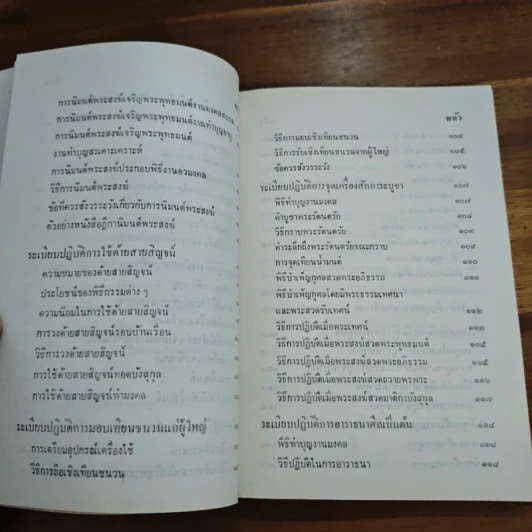 การนิมนต์พระสงฆ์เจริญพระพุทธมนต์งานมงคล
การนิมนต์พระสงฆ์เจริญพระพุทธมนต์งานทำบุญอายุ
การนิมนต์พระสงฆ์เจริญพระพุทธมนต์
งานทำบุญสะเดาะเคราะห์
การนิมนต์พระสงฆ์ประกอบพิธีงานอวมงคล
วิธีการนิมนต์พระสงฆ์
ข้อที่ควรสังวรระวังเกี่ยวกับการนิมนต์พระสงฆ์
ตัวอย่างหนังสือฎีกานิมนต์พระสงฆ์
ระเบียบปฏิบัติการใช้ด้ายสายสิญจน์
ความหมายของด้ายสายสิญจน์
ประโยชน์ของพิธีกรรมต่าง ๆ
ความนิยมในการใช้ด้ายสายสิญจน์
การวงด้ายสายสิญจน์รอบบ้านเรือน
วิธีการวงด้ายสายสิญจน์
การใช้ด้ายสายสิญจน์ทอดบังสุกุล
การใช้ด้ายสายสิญจน์ทำมงคล
ระเบียบปฏิบัติการมอบเทียนชนวนแก่ผู้ใหญ่
การเตรียมอุปกรณ์เครื่องใช้
วิธีการถือเชิงเทียนชนวน
หน้า
วิธีการมอบเชิงเทียนชนวน ๑๐๔
วิธีการรับเชิงเทียนชนวนจากผู้ใหญ่ ๑๐๕
ข้อควรสังวรระวัง ๑๐๖
ระเบียบปฏิบัติการจุดเครื่องสักการะบูชา ๑๐๗
พิธีทำบุญงานมงคล ๑๐๗
คำบูชาพระรัตนตรัย ๑๐๘
วิธีกราบพระรัตนตรัย ๑๐๙
คำระลึกถึงพระรัตนตรัยขณะกราบ ๑๐๙
การจุดเทียนน้ำมนต์
พิธีบำเพ็ญกุศลสวดพระอภิธรรม ๑๑๑
พิธีบำเพ็ญกุศลโดยมีพระธรรมเทศนา
และพระสวดรับเทศน์ ๑๑๒
วิธีการปฏิบัติเมื่อพระเทศน์ ๑๑๓
วิธีการปฏิบัติเมื่อพระสงฆ์สวดพระพุทธมนต์ ๑๑๕
วิธีการปฏิบัติเมื่อพระสงฆ์สวดพระอภิธรรม ๑๑๕
วิธีการปฏิบัติเมื่อพระสงฆ์สวดถวายพรพระ ๑๑๖
วิธีการปฏิบัติเมื่อพระสงฆ์สวดมาติกาบังสุกุล ๑๑๗
ระเบียบปฏิบัติการอาราธนาศีลเป็นต้น ๑๑๘
พิธีทำบุญงานมงคล ๑๑๘
วิธีปฏิบัติในการอาราธนา ๑๑๘